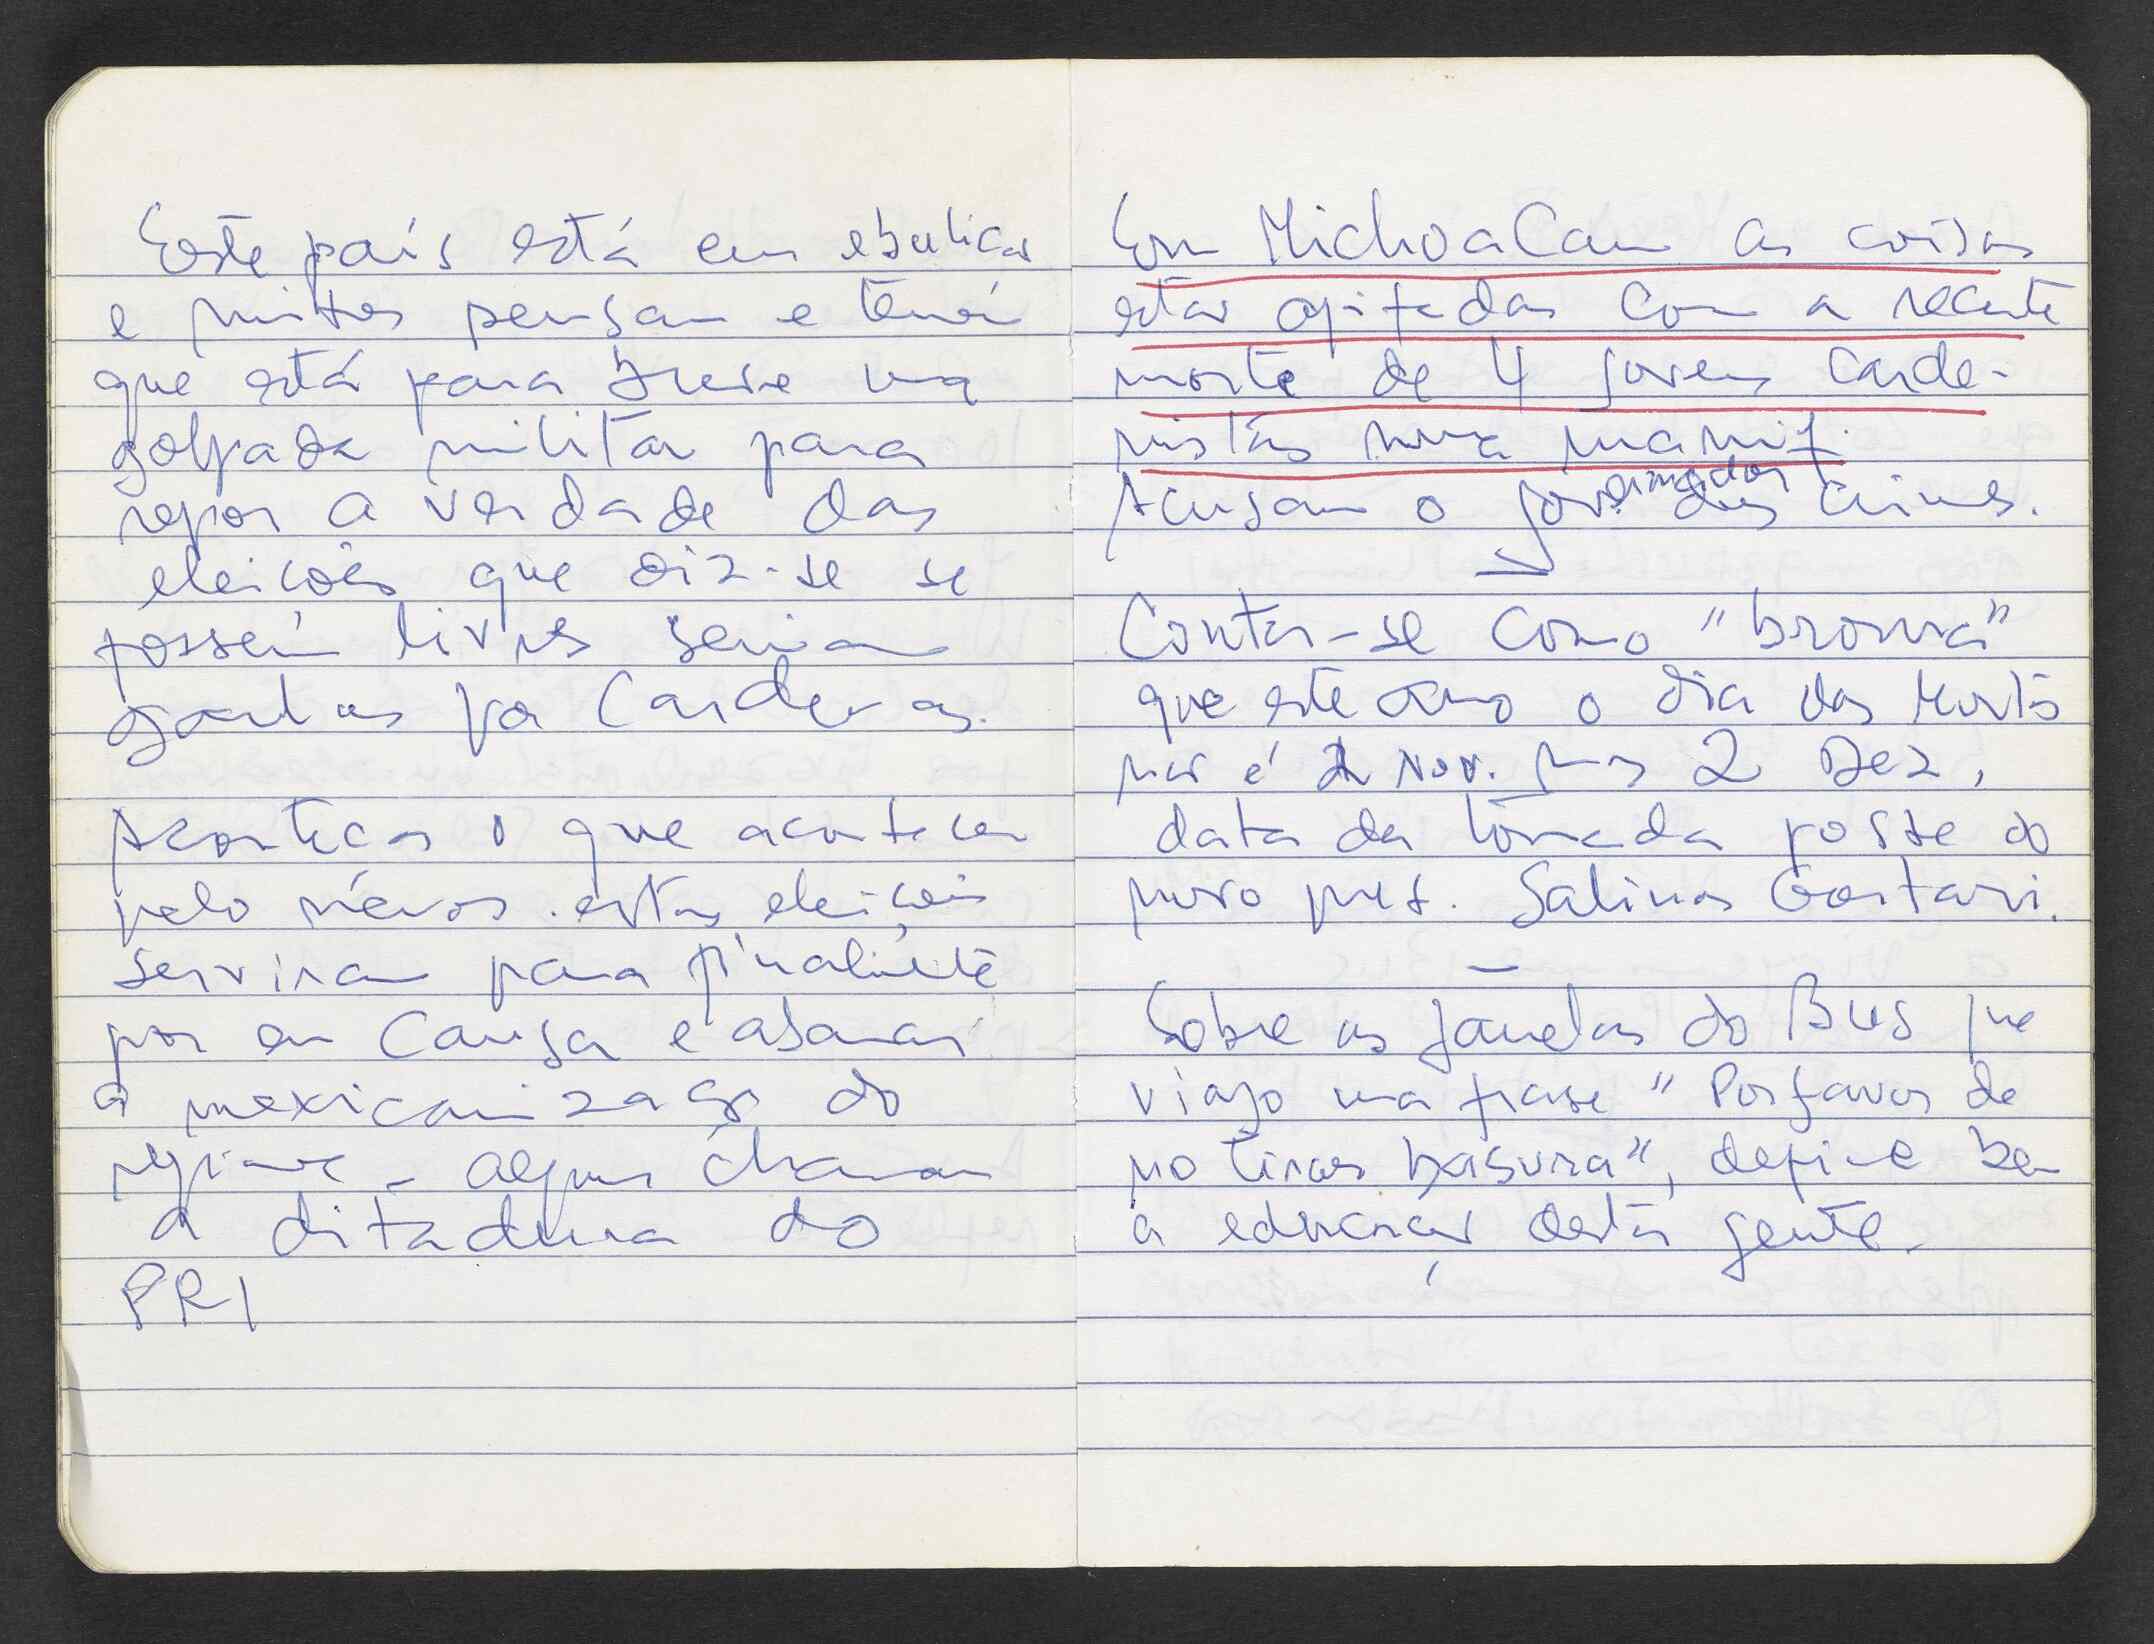 Este país está em ebulição
e muitos pensam e temem
que está para breve uma
golpada militar para
repor a verdade das
eleições que diz-se se
fossem livres seriam
ganhas por Cardenas.
Aconteça o que acontecer
pelo menos estas eleições
serviram para finalmente
por em causa e abanar
a mexicanização do
regime – alguns chamam
a ditadura do
PRI
Em Michoacan as coisas
estão agitadas com a recente
morte de 4 jovens carde-
nistas numa manif.
Acusam o governador dos crimes.
Conta-se como "broma"
que este ano o dia dos Mortos
não é 2 Nov. mas 2 Dez,
data da tomada posse do
novo pres. Salinas Gortari.
–
Sobre as janelas do Bus que
viajo uma frase "Por favor de
no tirar basura", define bem
a educação desta gente.